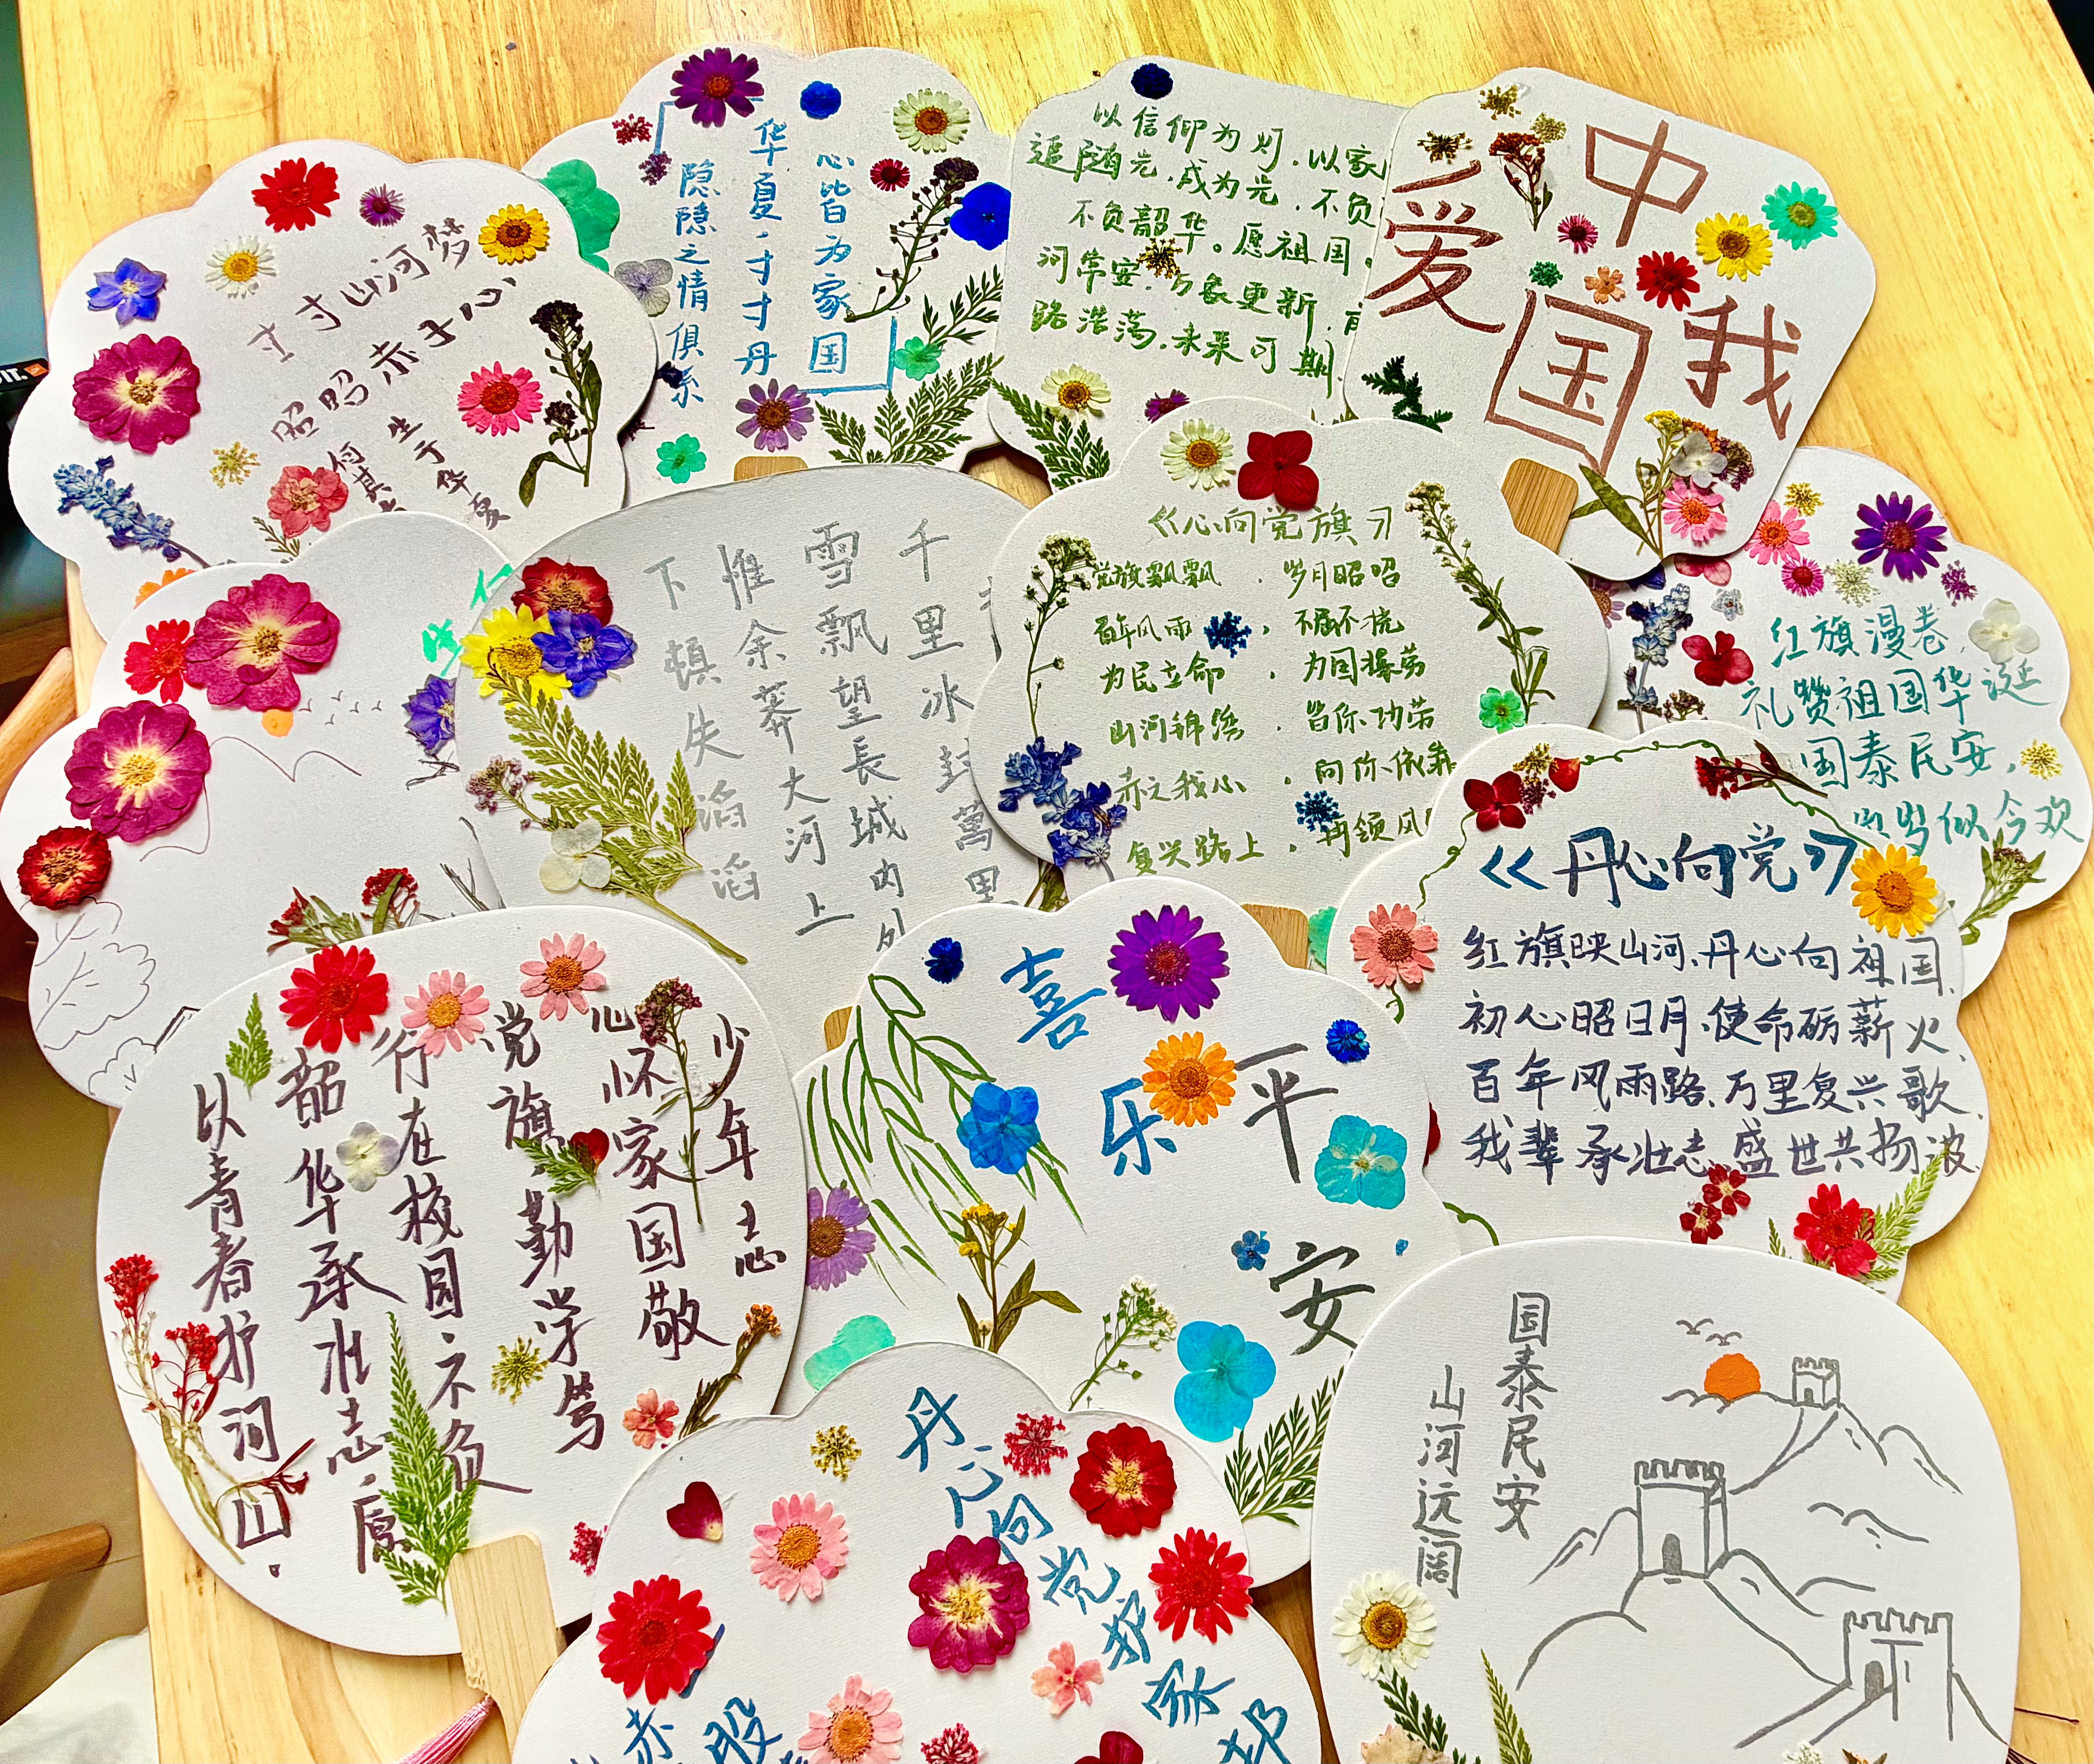 寸寸山河梦
昭昭赤子心
生于华夏
何其
心皆为家国
华夏,寸寸丹
隐隐之情俱系
以信仰为灯.以家
追随光.成为光.不负
不负韶华。愿祖国
河常安.万象更新.
路浩荡.未来可期
我爱
中国
千里冰封萬里
雪飘望長城内外
惟余莽大河上
下頓失滔滔
《心向党旗》
党旗飘飘,岁月昭昭
百年风雨,不屈不挠
为民立命,为国操劳
山河锦绣,皆你功劳
赤之我心,向你依靠
复兴路上,再领风
红旗漫卷,
礼赞祖国华诞
国泰民安,
岁岁似今欢
《丹心向党》
红旗映山河.丹心向祖国.
初心昭日月.使命砺薪火.
百年风雨路.万里复兴歌.
我辈承壮志.盛世共扬波.
少年志
心怀家国敬
党旗勤学笃
行在校园.不负
韶华承壮志,愿
以青春护河山.
喜乐
平安
丹心向党护家邦
赤
股
国泰民安
山河远阔